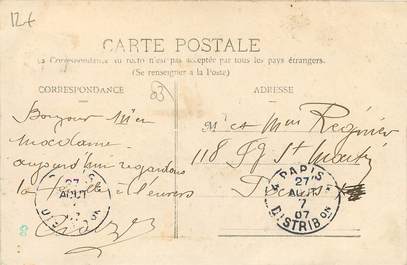 12+
CARTE POSTALE
La Correspondance au recto n'est pas acceptée par tous les pays étrangers.
(Se renseigner à la Poste)
CORRESPONDANCE
ADRESSE
83
Bonjour
madame
aujourd'hui regardons
la famille à l'envers
Mr et Mme Régnier
118 Fg St Martin
27
AOUT
7
PARIS
27
AOUT
7
07
DISTRIBON